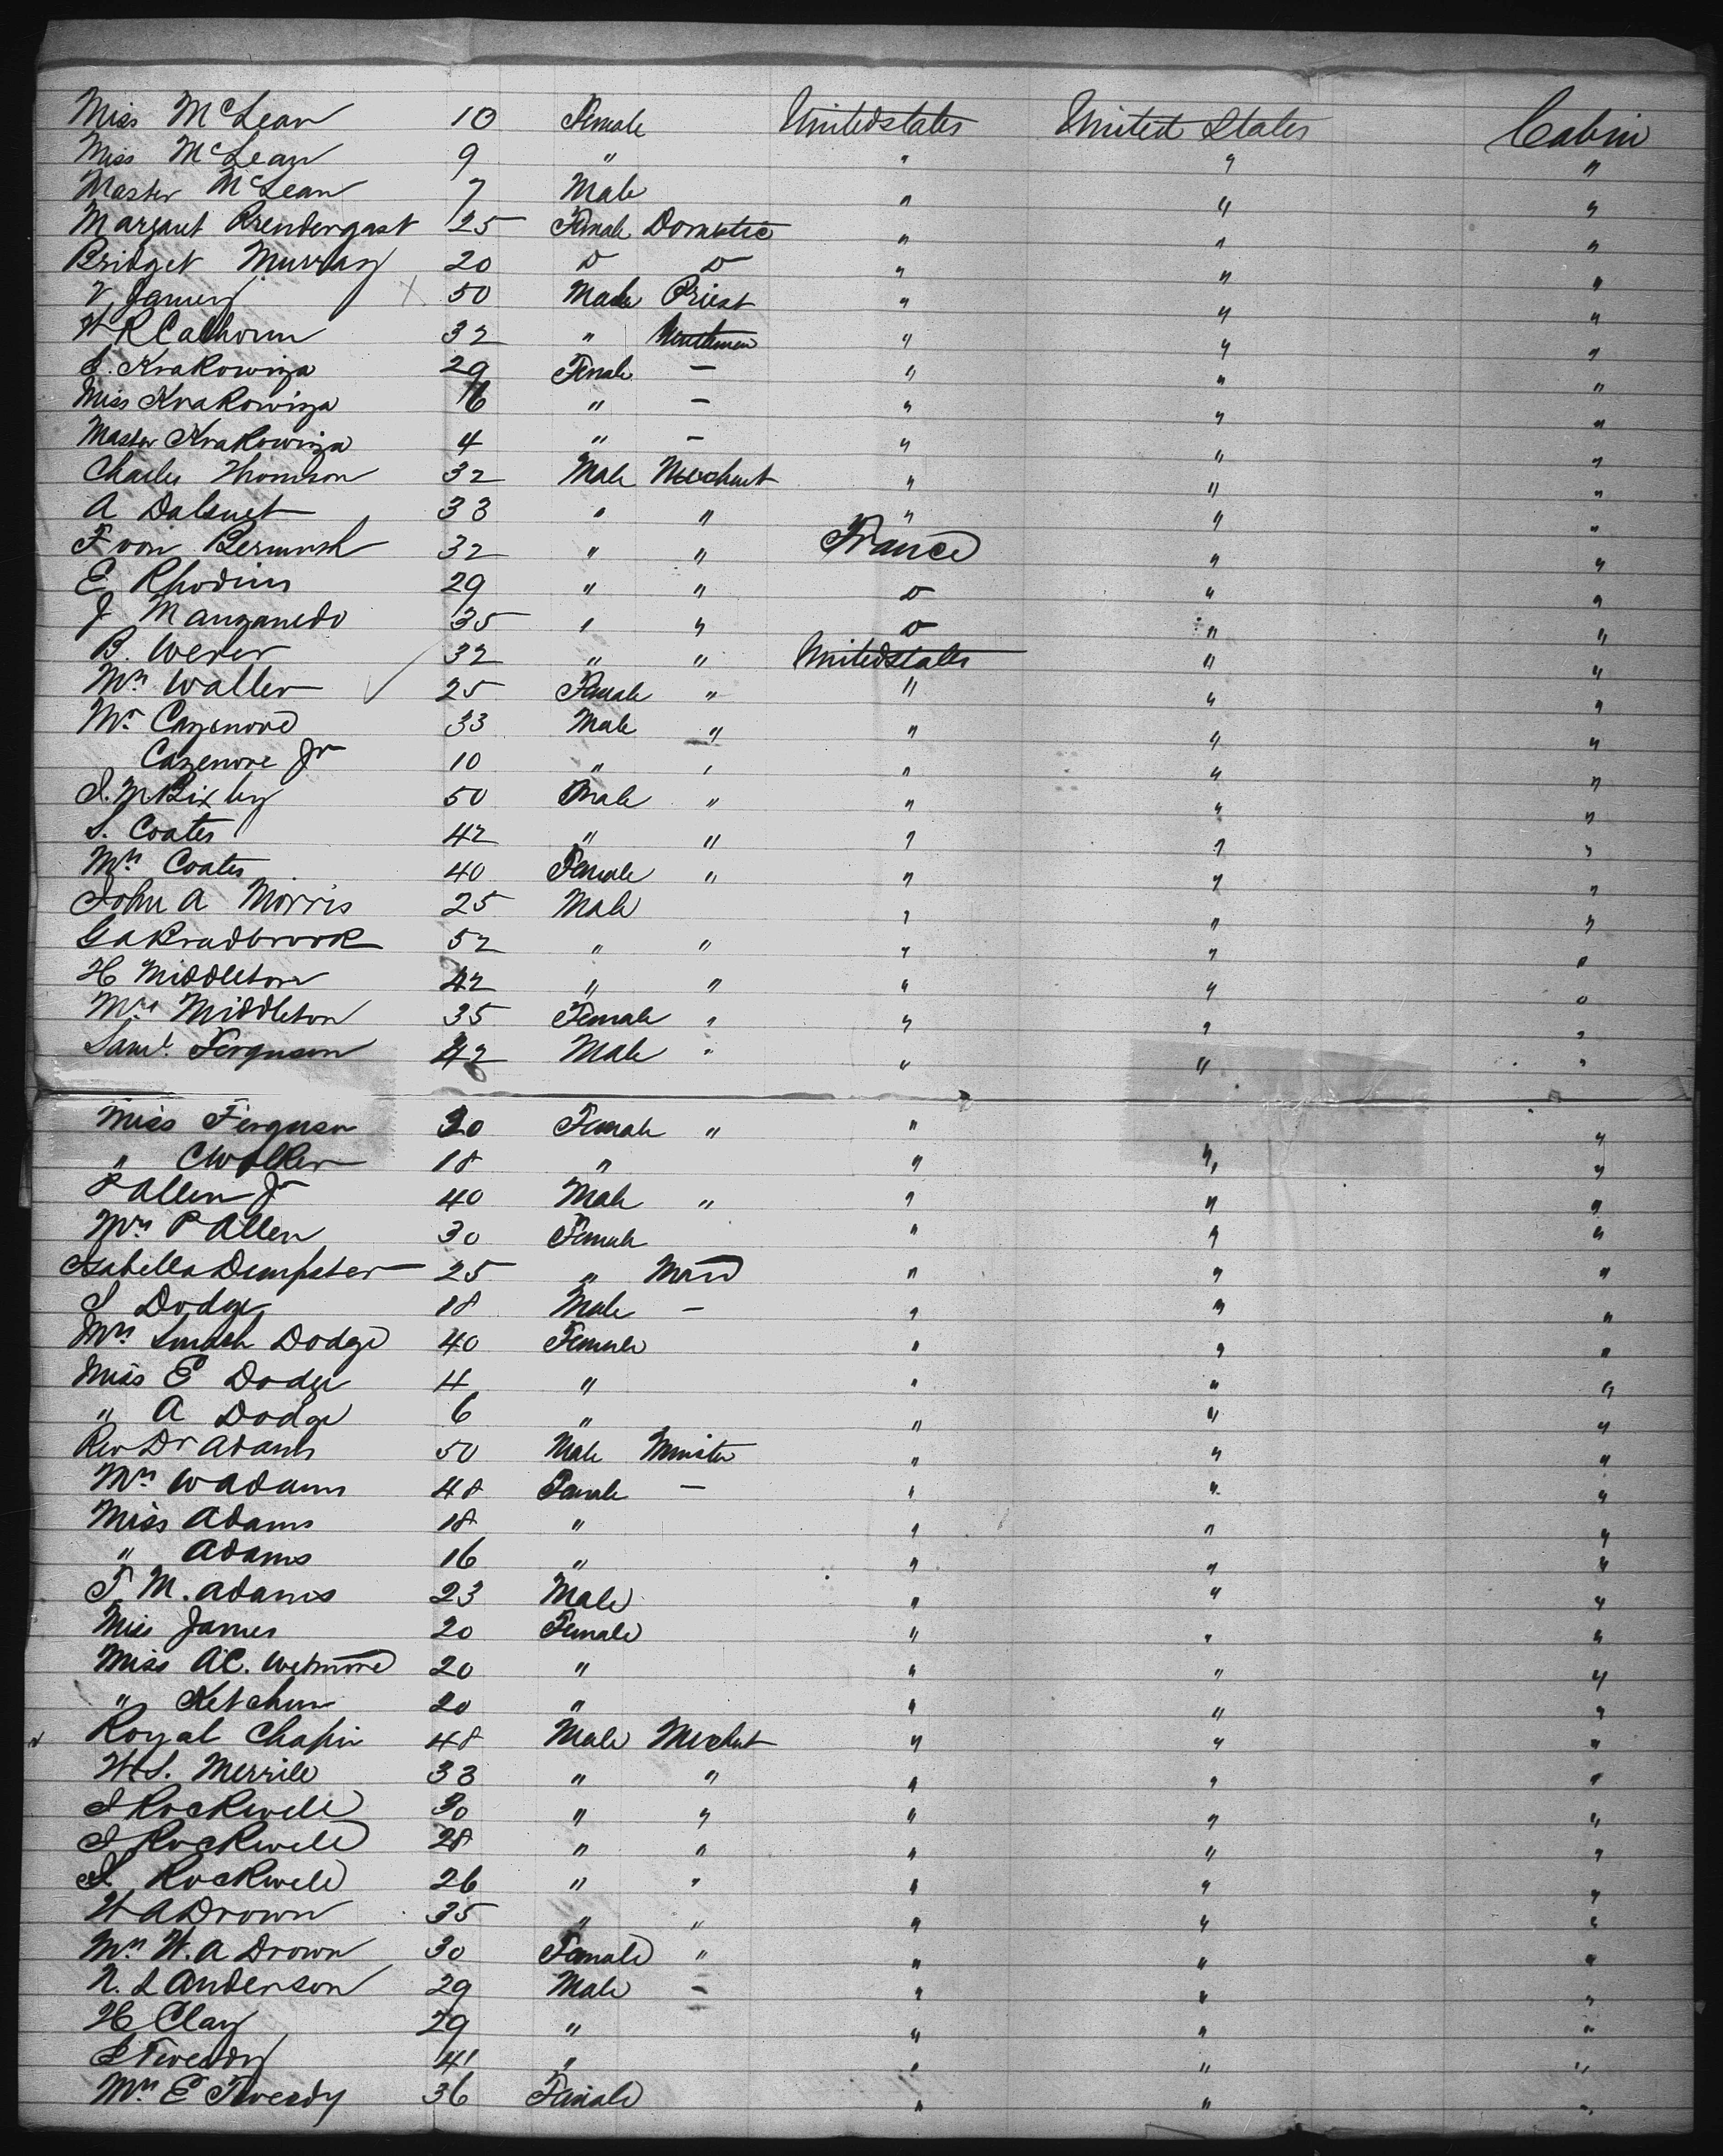 Miss McLean 10 Female United states United States Cabin
Miss McLean 9 " " " "
Master McLean 7 Male " " "
Margaret Prendergast 25 Female Domestic " " "
Bridget Murray 20 Do Do " " "
50 Male Priest " " "
W R Calhoun 32 " Gentleman " " "
Krakowiza 29 Female - " " "
Miss Krakowiza 6 " - " " "
Master Krakowiza 4 " - " " "
Charles Thomson 32 Male Merchant " " "
A 33 " " " " "
F von 32 " " France " "
E Rhodius 29 " " Do " "
J Manzanedo 35 " " Do " "
B. Wever 32 " " United states " "
Mrs Waller 25 Female " " " "
Mr Cazenove 33 Male " " " "
Cazenove Jr 10 " " " " "
Bixby 50 Male " " " "
S. Coates 42 " " " " "
Mrs Coates 40 Female " " " "
John A Morris 25 Male " " "
G A Bradbrook 52 " " " " "
H Middleton 42 " " " " "
Mrs Middleton 35 Female " " " "
Saml. Ferguson 42 Male " " " "
Miss Ferguson 20 Female " " "
" C Walker 18 " " " "
P Allen Jr 40 Male " " " "
Mrs P Allen 30 Female " " "
Isabella Dempster 25 " Maid " " "
S Dodge 18 Male - " " "
Mrs Dodge 40 Female " " "
Miss E Dodge 4 " " " "
" A Dodge 6 " " " "
Rev Dr Adams 50 Male Minister " " "
Mrs W Adams 48 Female - " " "
Miss Adams 18 " " " "
" Adams 16 " " " "
T. M. Adams 23 Male " " "
Miss James 20 Female " " "
Miss A C. Wetmore 20 " " " "
" Ketchum 20 " " " "
Royal Chapin 48 Male Merchat " " "
W S. Merrill 33 " " " " "
J Rockwell 30 " " " " "
J Rockwell 28 " " " " "
S. Rockwell 26 " " " " "
W A Drown 35 " " " " "
Mrs W. A Drown 30 Female " " " "
N. L Anderson 29 Male - " " "
H Clay 29 " " " "
Tweedy 41 " " " "
Mrs E Tweedy 36 Female " " "